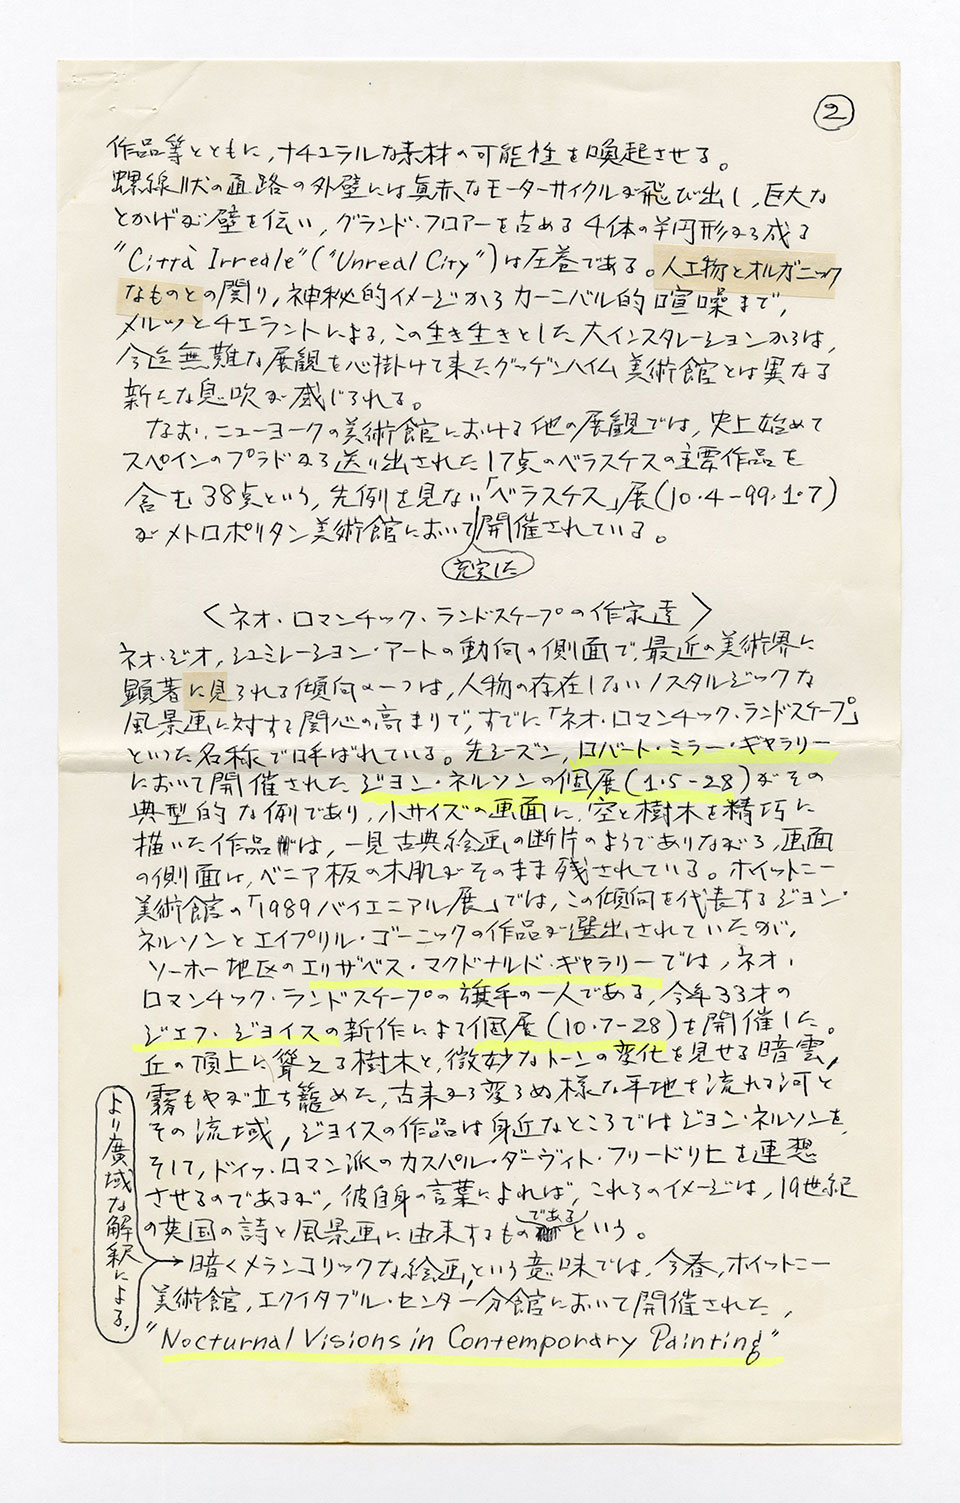 ②
作品等とともに,ナチュラルな素材の可能性を喚起させる。
螺線状の通路の外壁には真赤なモーターサイクルが飛び出し,巨大な
とかげが壁を伝い,グランド・フロアーを占める4体の半円形から成る
"Città Irreale"("Unreal City")は圧巻である。人工物とオルガニック
なものとの関り,神秘的イメージからカーニバル的喧噪まで,
メルツとチェラントによる,この生き生きとした大インスタレーションからは,
今迄無難な展観を心掛けて来たグッゲンハイム美術館とは異なる
新たな息吹が感じられる。
なお,ニューヨークの美術館における他の展観では,史上始めて
スペインのプラドから送り出された17点のベラスケスの主要作品を
含む38点という,先例を見ない「ベラスケス」展(10.4-99.1.7)
がメトロポリタン美術館において開催されている。
充実した
〈ネオ・ロマンチック・ランドスケープの作家達〉
ネオ・ジオ,シュミレーション・アートの動向の側面で,最近の美術界に
顕著に見られる傾向の一つは,人物の存在しないノスタルジックな
風景画に対する関心の高まりで,すでに「ネオ・ロマンチック・ランドスケープ」
といった名称で呼ばれている。先シーズン,ロバート・ミラー・ギャラリー
において開催されたジョン・ネルソンの個展(1.5-28)がその
典型的な例であり,小サイズの画面に,空と樹木を精巧に
描いた作品は,一見古典絵画の断片のようでありながら,画面
の側面は,ベニア板の木肌がそのまま残されている。ホイットニー
美術館の「1989バイエニアル展」では,この傾向を代表するジョン・
ネルソンとエイプリル・ゴーニックの作品が選出されていたが,
ソーホー地区のエリザベス・マクドナルド・ギャラリーでは,ネオ・
ロマンチック・ランドスケープの旗手の一人である,今年33才の
ジェフ・ジョイスの新作による個展(10.7-28)を開催した。
丘の頂上に聳える樹木と,微妙なトーンの変化を見せる暗雲,
霧もやが立ち籠めた,古来から変らぬ様な平地を流れる河と
その流域,ジョイスの作品は身近なところではジョン・ネルソンを,
そして,ドイツ・ロマン派のカスパル・ダーヴィト・フリードリヒを連想
させるのであるが,彼自身の言葉によれば,これらのイメージは,19世紀
の英国の詩と風景画に由来するものであるという。
より廣域な解釈による,
暗くメランコリックな絵画,という意味では,今春,ホイットニー
美術館,エクイタブル・センター分館において開催された,
"Nocturnal Visions in Contemporary Painting"